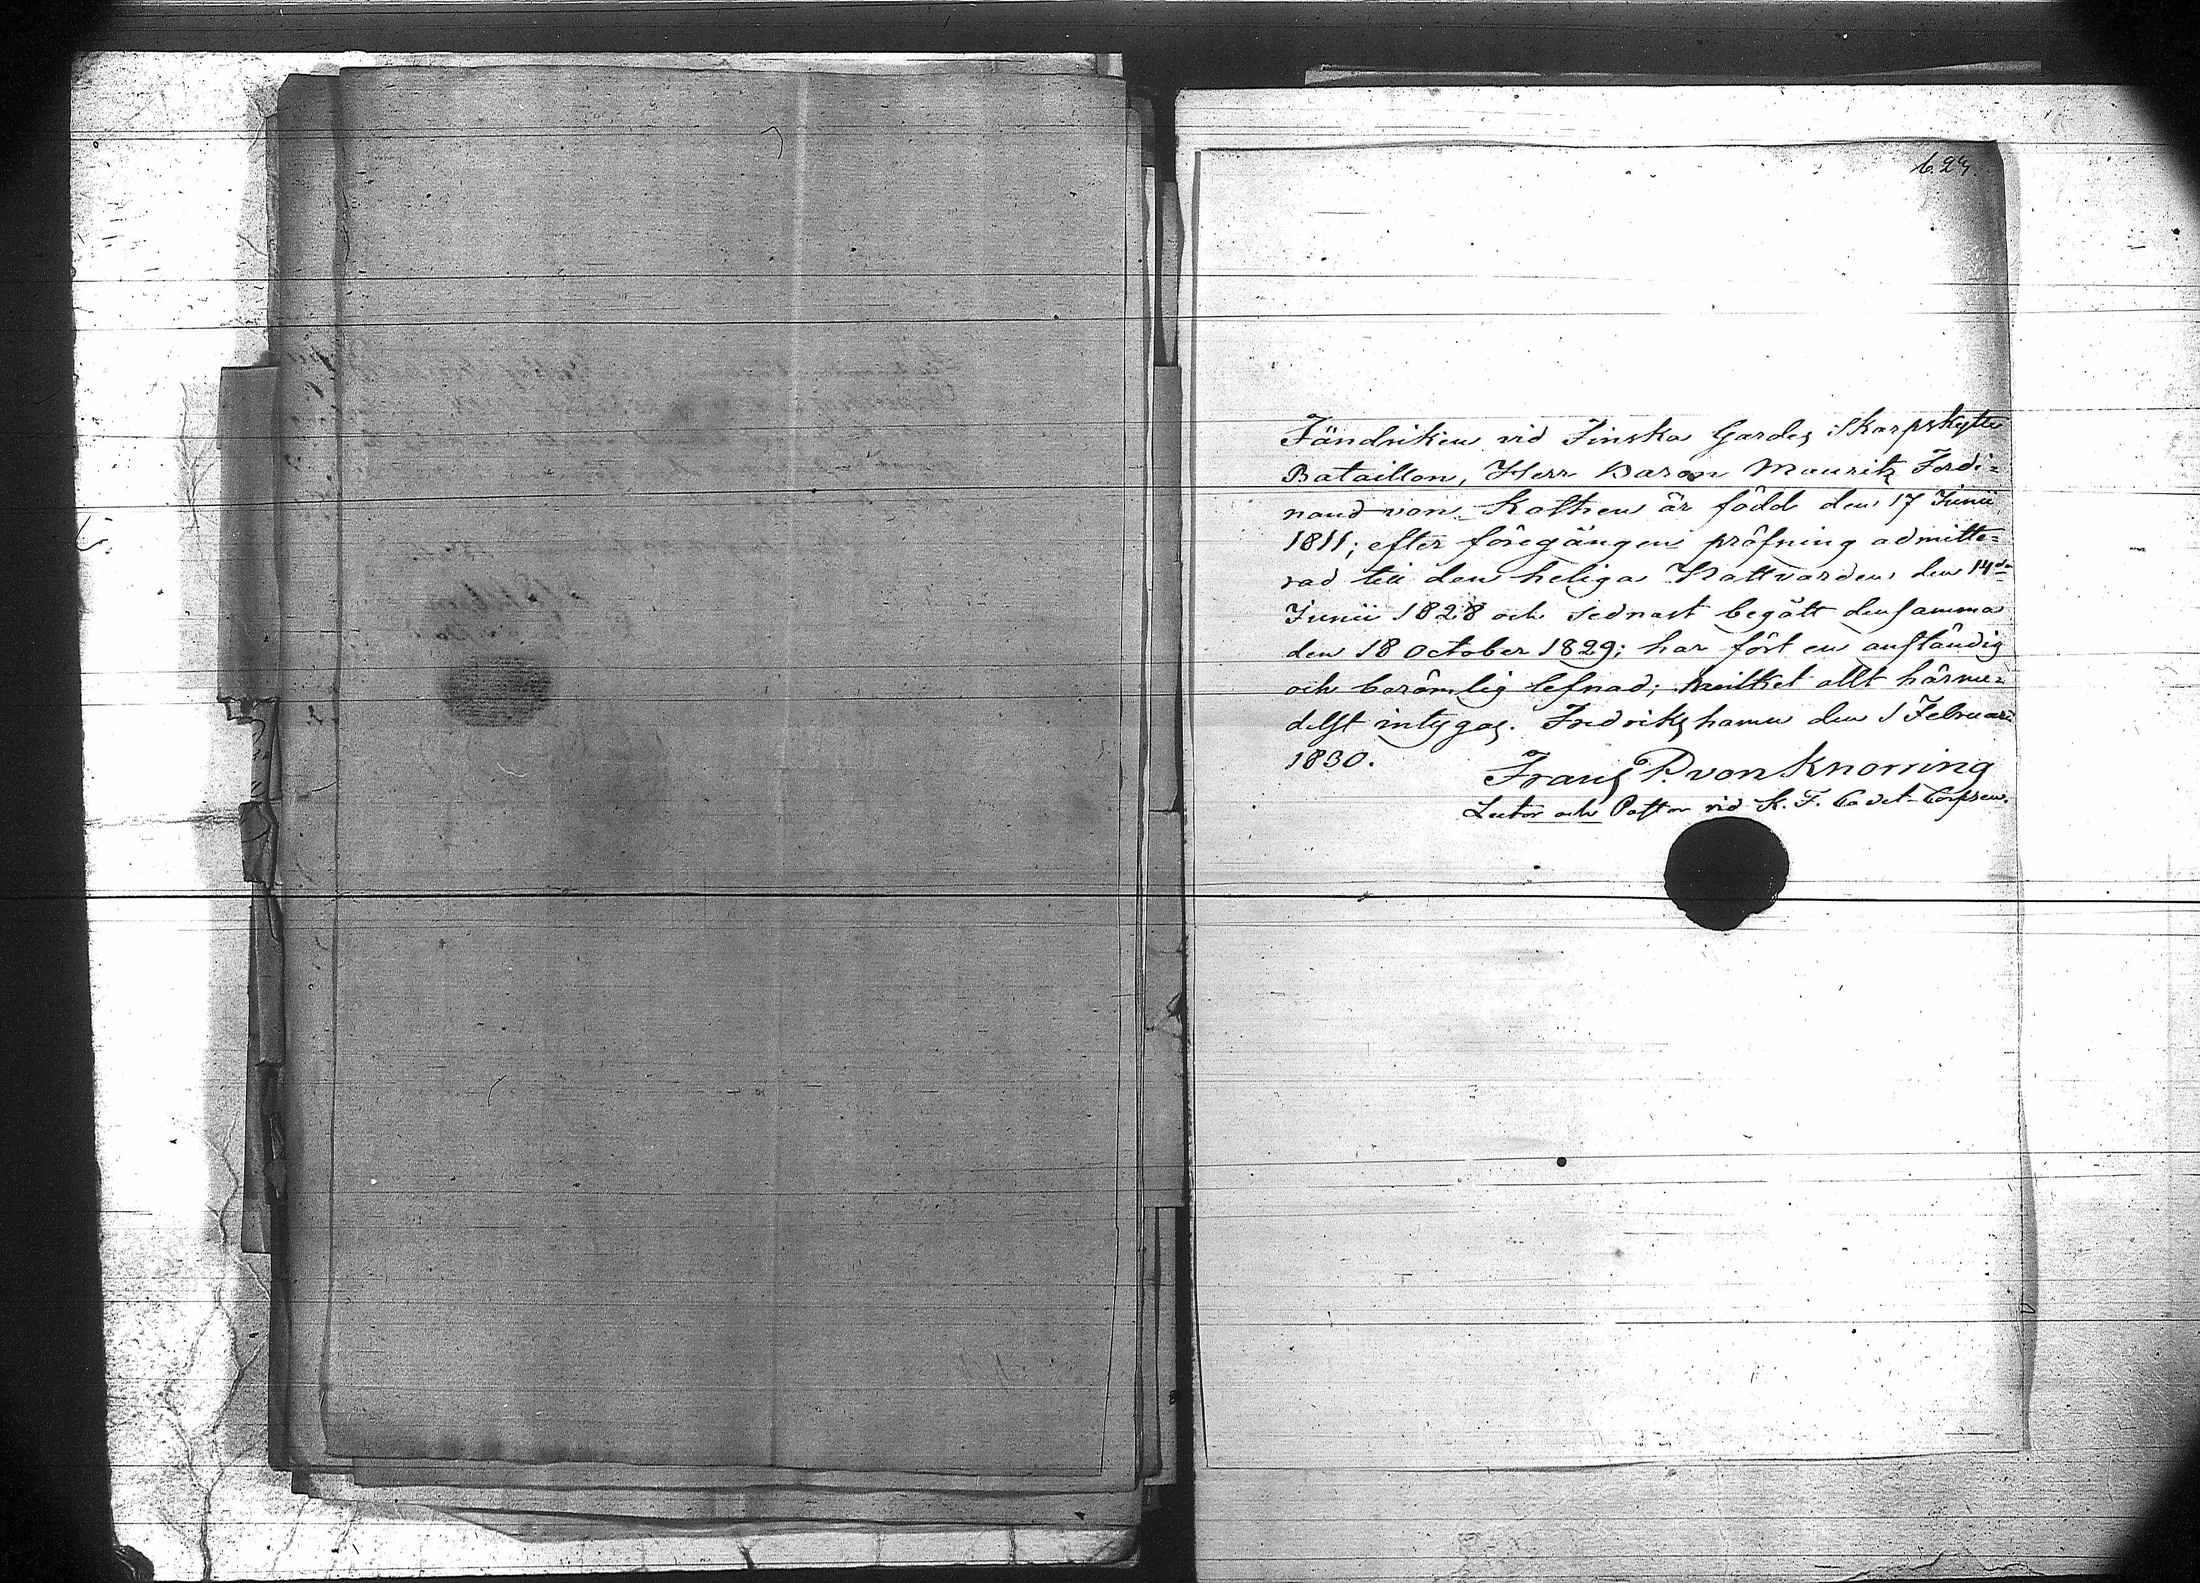 b. 29.
Fändriken vid Finska Gardes Skarpskytte
Bataillon, Herr Baron Mauritz Ferdi=
nand von Kothen är född den 17 Junii
1811; efter föregången pröfning admitte=
rad till den heliga Nattvarden den 14de
Junii 1828 och sednast begått densamma
den 18 October 1829; har fört en anständig
och berömlig lefnad; hvilket allt härme=
delst intygas. Fredrikshamn den 1 Februari
1830.
Frans P. von Knorring
Lector och Pastor vid K. F. Cadet-Corpsen.